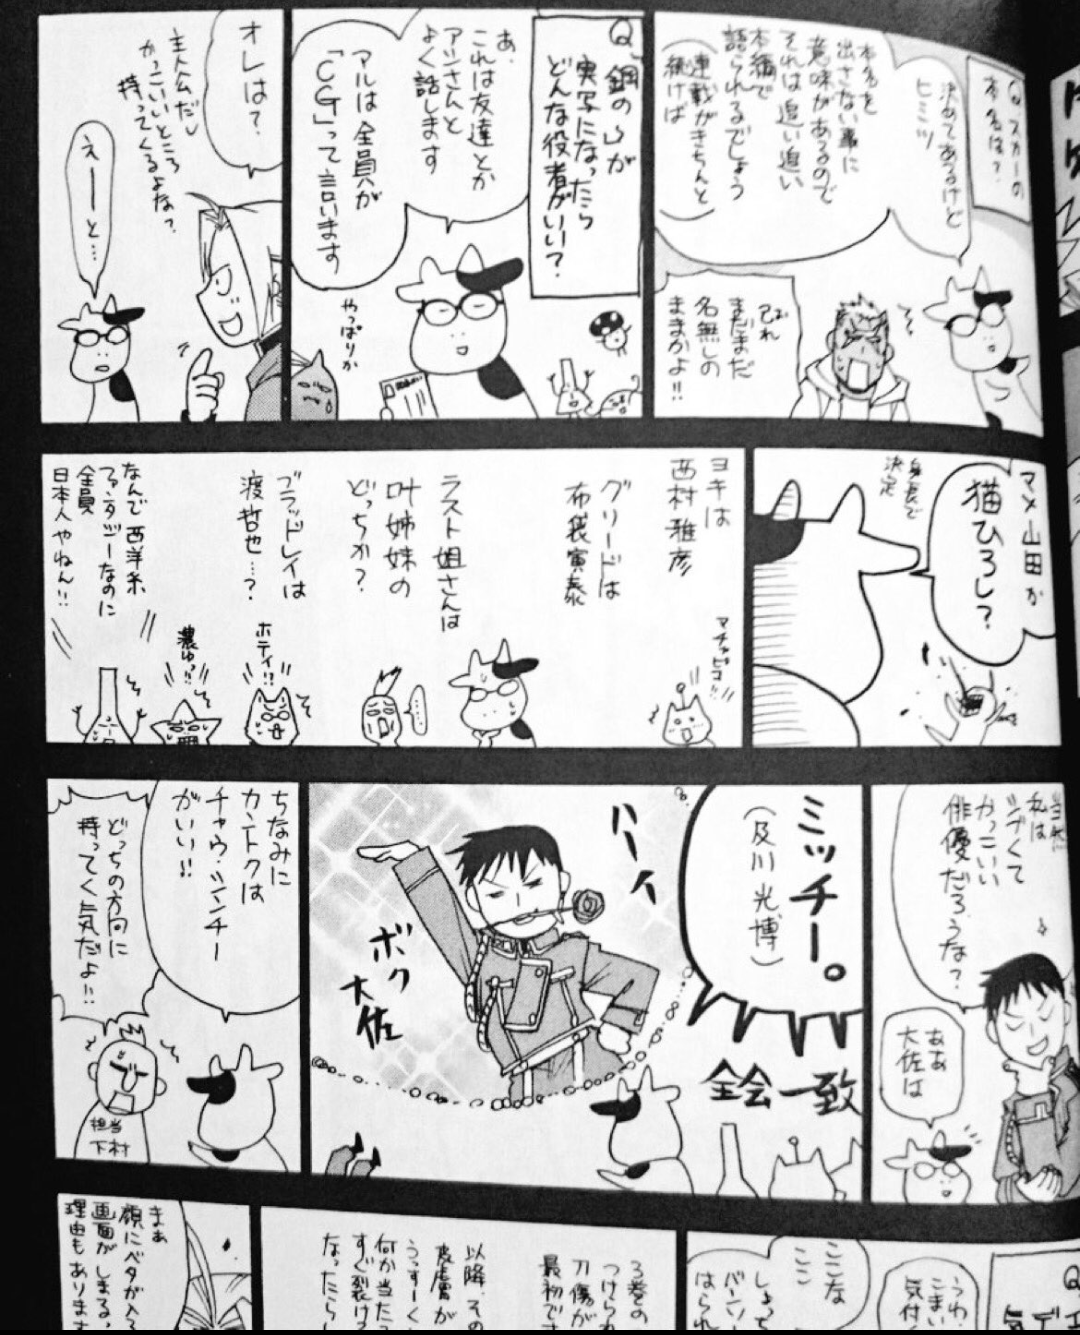 Q、スカーの
本名は?
決めてあるけど
ヒミツ
本名を
出さない事に
意味があるので
それは追い追い
本編で
語られるでしょう
(連載がきちんと
続けば
おれ
まだまだ
名無しの
ままかよ!!
Q、「鋼の」が
実写になったら
どんな役者がいい?
あ、
これは友達とか
アシさんと
よく話します
アルは全員が
「CG」って言います
やっぱりか
オレは?
主人公だし
かっこいいところ
持ってくるよな?
えーーと…
マメ山田か
猫ひろし?
身長で
決定
ヨキは
西村雅彦
マチャピコ!!
グリードは
布袋寅泰
ラスト姐さんは
叶姉妹の
どっちか?
ブラッドレイは
渡哲也…?
ホティ!!
濃ゆっ!!
なんで西洋系
ファンタジーなのに
全員
日本人やねん!!
当然
私は
シブくて
かっこいい
俳優だろうな?
ああ
大佐は
ミッチー。
(及川光博)
全会一致
ハーイ
ボク
大佐
ちなみに
カントクは
チャウ・シンチー
がいい!!
どっちの方向に
持ってく気だよ!!
担当
下村
うわ
こまい
気付
ここな
ここ
しょっち
バーン
はられ
3巻の
つけられ
刀傷が
最初で
以降、その
皮膚が
うっすーく
何か当たっ
すぐ裂け
なったらし
まぁ
顔にベタが入る
画面がしまる、
理由もあります